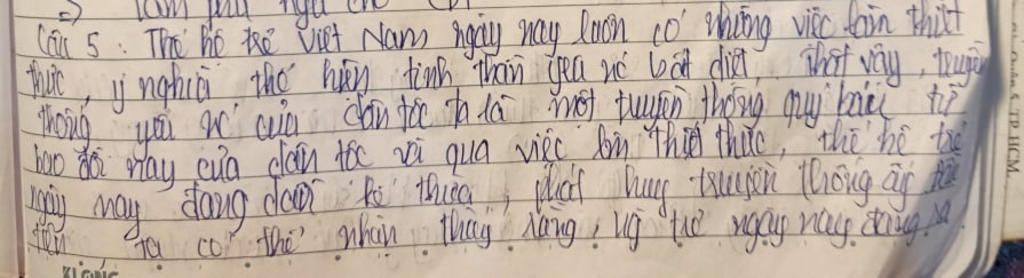 Câu 5: Thế hệ trẻ Việt Nam ngày nay luôn có những việc làm thiết
thực, ý nghĩa thể hiện tinh thần yêu nước bất diệt. Thật vậy, truyền
thống yêu nước của dân tộc ta là một truyền thống quý báu từ
bao đời nay của dân tộc và qua việc làm thiết thực, thế hệ trẻ
ngày nay đang kế thừa, phát huy truyền thống ấy
tiên, ta có thể nhận thấy rằng, tuổi trẻ ngày nay đang
TP.HCM
KLONG